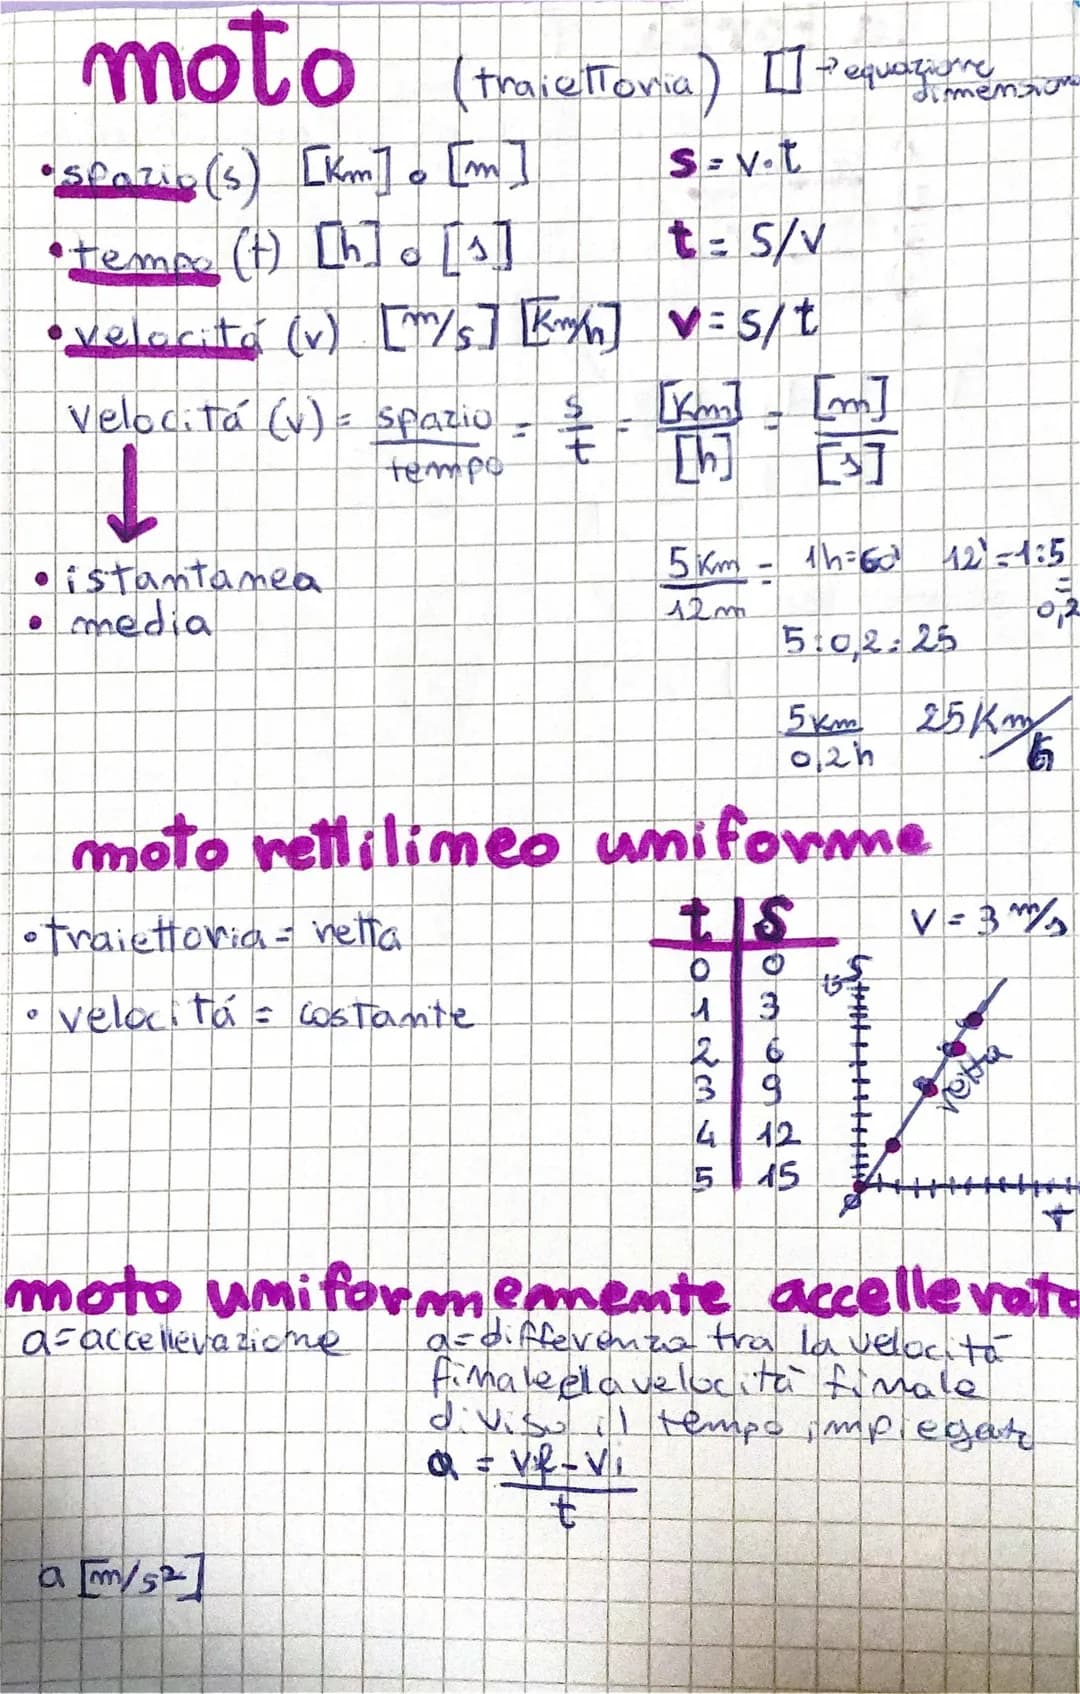 moto (traiettoria) [] → equazione dimensiona
• spazio (s) [Km] o [m] s = v·t
• tempo (t) [h] o [s] t = s/v
• velocitá (v) [m/s] [Km/h] v = s/t
velocitá (v) = spazio/tempo = s/t = [Km]/[h] = [m]/[s]
↓
• istantanea
• media
5 Km/12 m = 1h=60' 12'=1:5 = 0,2
5:0,2=25
5 km/0,2 h 25 Km/h
moto rettilineo uniforme
• traiettoria = retta
• velocitá = costante
t | s v = 3 m/s
0 | 0
1 | 3
2 | 6
3 | 9
4 | 12
5 | 15
15 s
retta
0 t
moto uniformemente accellerato
a = accellerazione
a = differenza tra la velocitá
finale e la velocitá finale
diviso il tempo impiegato
a = vf - vi / t
a [m/s²]